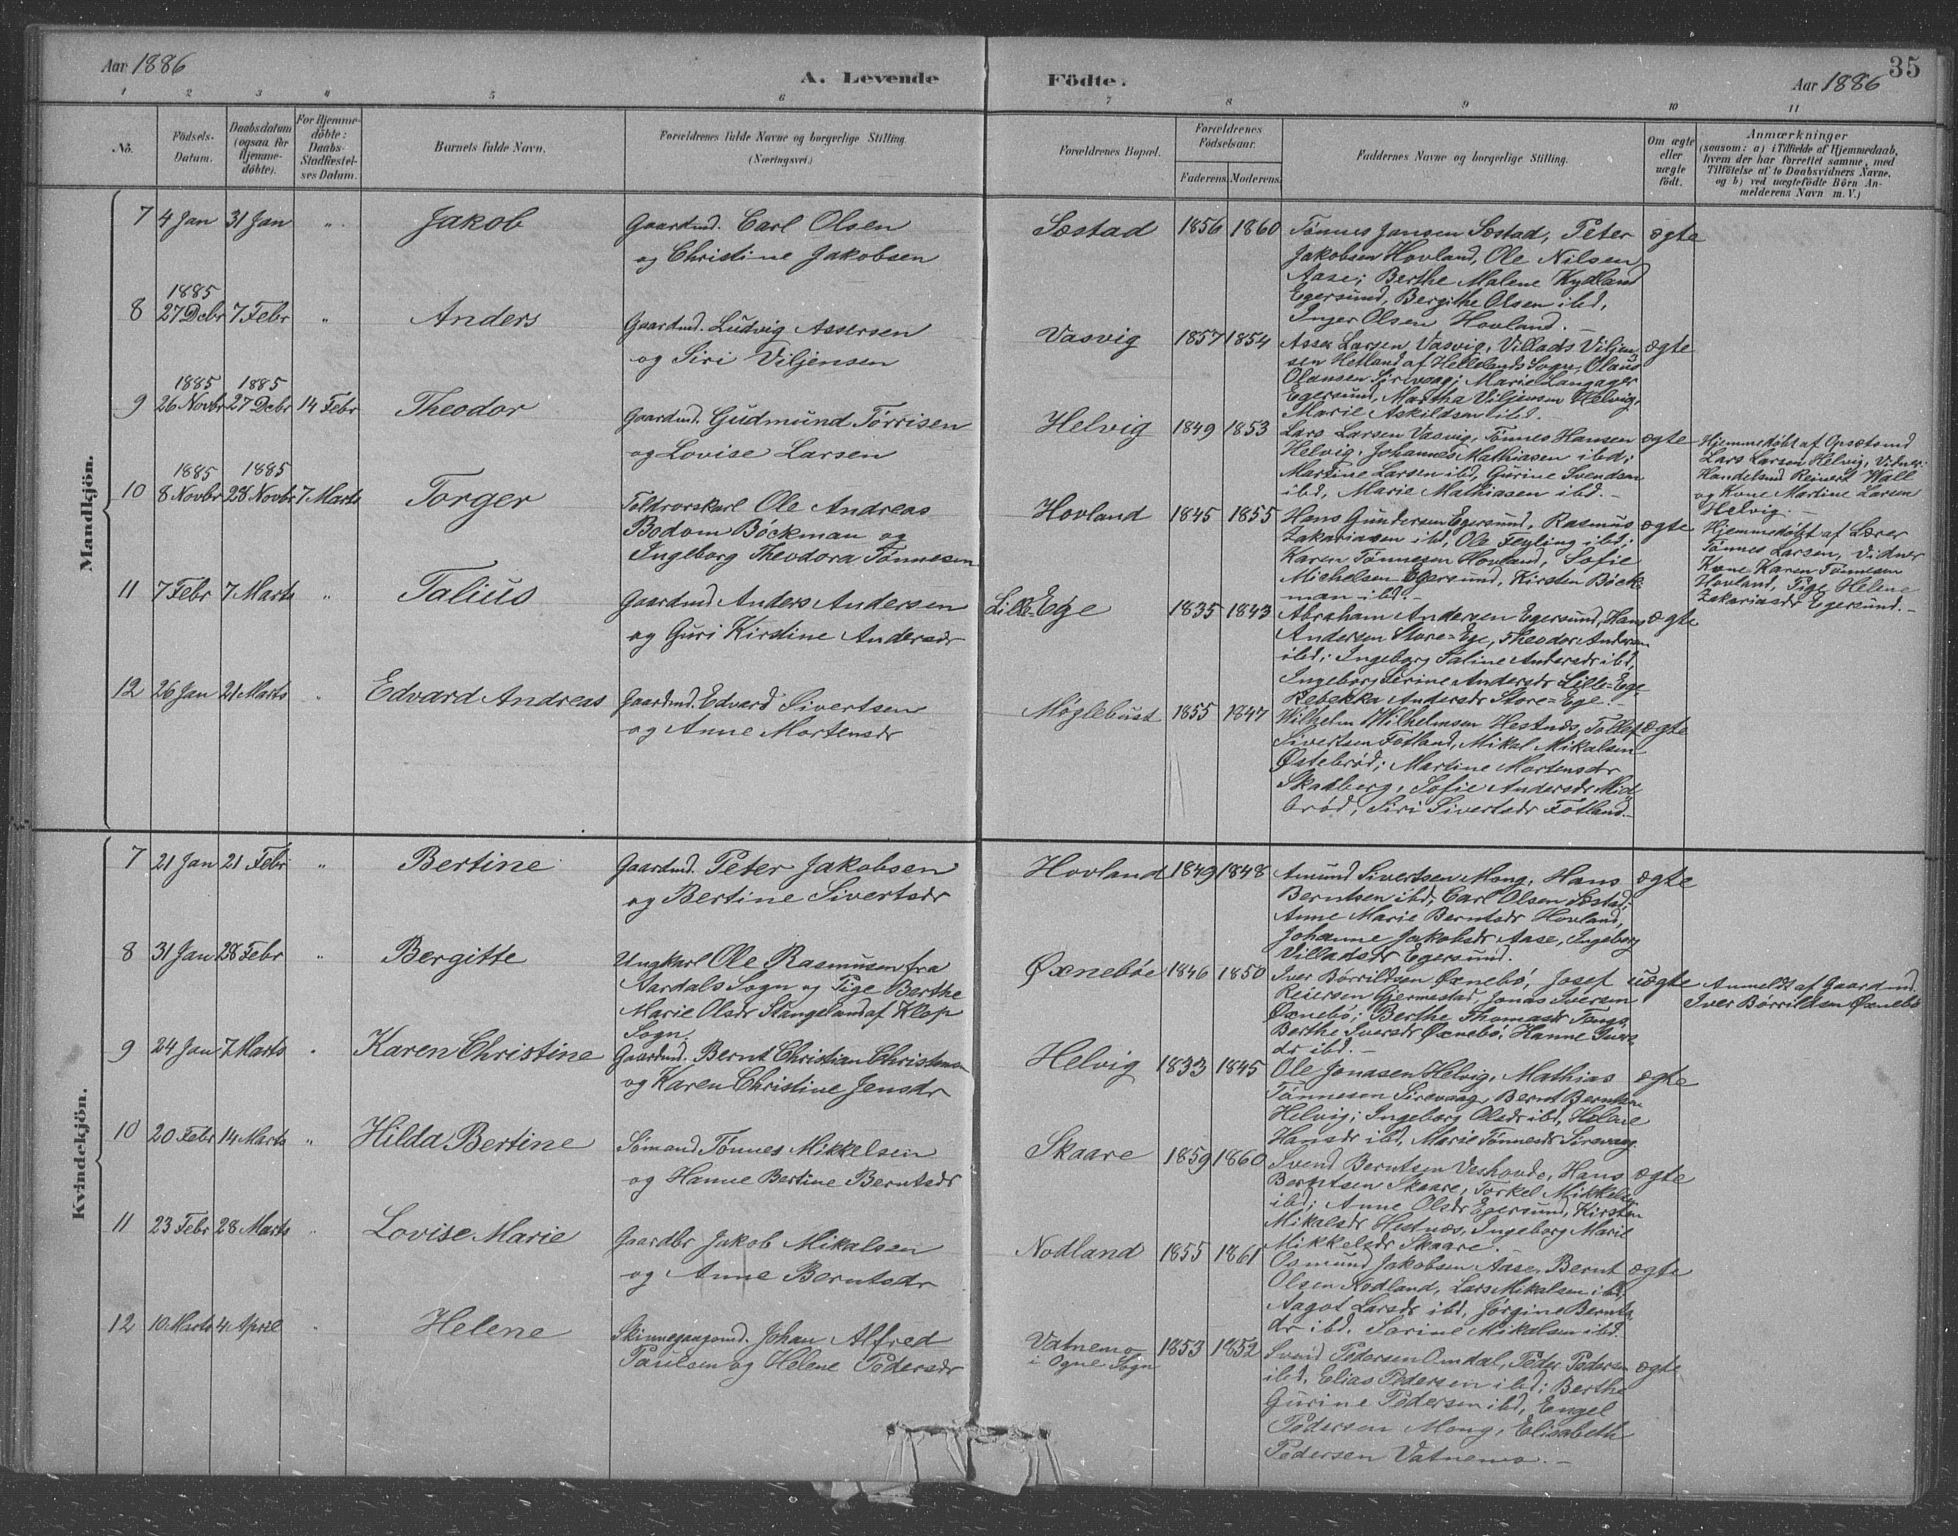 Aar 1886
A. Levende
Födte.
Aar 1886
35
1 2 3 4 5 6 7 8 9 10 11
No.
Födsels-
Datum.
Daabsdatum
(ogsaa for
Hjemme-
döbte).
For Hjemme-
döbte:
Daabs-
Stadfæstel-
ses Datum.
Barnets fulde Navn.
Forældrenes fulde Navne og borgerlige Stilling.
(Næringsvei.)
Forældrenes Bopæl.
Forældrenes
Födselsaar.
Faderens. Moderens.
Faddernes Navne og borgerlige Stilling.
Om ægte
eller
uægte
födt.
Anmærkninger
(saasom: a) i Tilfælde af Hjemmedaab,
hvem der har forrettet samme, med
Tilföielse af to Daabsvidners Navne,
og b) ved uægtefödte Börn An-
melderens Navn m. V.)
Mandkjön.
7 4 Jan 31 Jan " Jakob
Gaardmd. Carl Olsen
og Christine Jakobsen
Sæstad 1856 1860
Tønnes Jansen Sæstad, Peter
Jakobsen Hovland, Ole Nilsen
Aase; Berthe Malene Kydland
Egersund, Bergithe Olsen ibd,
Inger Olsen Hovland.
ægte
8 1885
27 Dcbr 7 Febr " Anders
Gaardmd. Ludvig Assersen
og Siri Viljensen
Vasvig 1857 1854
Asser Larsen Vasvig, Villads Viljen-
sen Hetland af Hellelands Sogn, Olaus
Olausen Sirevaag; Marie Langager
Egersund, Martha Viljensen Helvig,
Marie Askildsen ibd.-
ægte
9 1885 1885
26 Novbr 27 Dcbr 14 Febr Theodor
Gaardmd. Gudmund Tørrisen
og Lovise Larsen
Helvig 1849 1853
Lars Larsen Vasvig, Tønnes Hansen
Helvig, Johannes Mathiasen ibd;
Martine Larsen ibd, Gurine Svendsen
ibd, Marie Mathiasen ibd.-
ægte
Hjemmedøbt af Opsætsmd
Lars Larsen Helvig, Vidner:
Handelsmd Reinert Wall
og Kone Martine Larsen
Helvig.-
10 1885 1885
8 Novbr 28 Novbr 7 Marts Torger
Toldrorskarl Ole Andreas
Bodom Böckman og
Ingeborg Theodora Tönnesen
Hovland 1845 1855
Hans Gundersen Egersund, Rasmus
Zakariasen ibd, Ole Feyling ibd;
Karen Tønnesen Hovland, Sofie
Michelsen Egersund, Kirsten Böck-
man ibd.-
ægte
Hjemmedøbt af Lærer
Tønnes Larsen, Vidner
Kone Karen Tønnesen
Hovland, Pige Helene
Zakariasdr Egersund.-
11 7 Febr 7 Marts " Talius
Gaardmd Anders Andersen
og Guri Kirstine Andersdr
Lille-Ege 1835 1843
Abraham Andersen Egersund, Hans
Andersen Store-Ege, Theodor Andersen
ibd; Ingeborg Taline Andersdr ibd,
Ingeborg Serine Andersdr Lille-Ege
Rebekka Andersdr Store-Ege.-
ægte
12 26 Jan 21 Marts " Edvard Andreas
Gaardmd. Edvard Sivertsen
og Anne Mortensdr
Møglebust 1855 1847
Wilhelm Wilhelmsen Hestnæs, Tollef
Sivertsen Fotland, Mikal Mikalsen
Østebrød; Martine Mortensdr
Skadberg, Sofie Andersdr Mid-
brød, Siri Sivertsdr Fotland.-
ægte
Kvindekjön.
7 21 Jan 21 Febr " Bertine
Gaardmd. Peter Jakobsen
og Bertine Sivertsdr
Hovland 1849 1848
Amund Sivertsen Mong, Hans
Berntsen ibd, Carl Olsen Sæstad;
Anne Marie Berntsdr Hovland,
Johanne Jakobsdr Aase, Ingeborg
Villadsdr Egersund.
ægte
8 31 Jan 28 Febr " Bergitte
Ungkarl Ole Rasmusen fra
Aardals Sogn og Pige Berthe
Marie Olsdr Stangeland af Klep
Sogn
Øxnebøe 1846 1850
Iver Børrildsen Øxnebø, Josef
Reiersen Gjermestad, Jonas Iversen
Øxnebø; Berthe Thomasdr
Berthe Iversdr Øxnebø, Hanne Ivers-
dr ibd.-
uægte
Anmeldt af Gaardmd.
Iver Børrildsen Øxnebø
9 24 Jan 7 Marts " Karen Christine
Gaardmd. Bernt Christian Christensen
og Karen Christine Jensdr
Helvig 1833 1845
Ole Jonasen Helvig, Mathias
Tønnesen Sirevaag, Bernt Berntsen
Helvig; Ingeborg Olsdr ibd, Helene
Hansdr ibd, Marie Tønnesdr Sirevaag
ægte
10 20 Febr 14 Marts " Hilda Bertine
Sømand Tønnes Mikkelsen
og Hanne Bertine Berntsdr
Skaare 1859 1860
Svend Berntsen Veshovde, Hans
Berntsen Skaare, Torkel Mikkelsen
ibd; Anne Olsdr Egersund, Kirsten
Mikalsdr Hestnæs, Ingeborg Marie
Mikkelsdr Skaare.
ægte
11 23 Febr 28 Marts " Lovise Marie
Gaardbr Jakob Mikalsen
og Anne Berntsdr
Nodland 1855 1861
Osmund Jakobsen Aase, Bernt
Olsen Nodland, Lars Mikalsen ibd,
Aagot Larsdr ibd, Jørgine Bernts-
dr ibd. Serine Mikalsen ibd.
ægte
12 10 Marts 4 April " Helene
Skinnegangsmd. Johan Alfred
Paulsen og Helene Pedersdr
Vatnemo
i Ogne Sogn
1853 1852
Svend Pedersen Omdal, Peder Pedersen
ibd, Elias Pedersen ibd; Berthe
Gurine Pedersen ibd, Engel
Pedersen Mong, Elisabeth
Pedersen Vatnemo.-
ægte